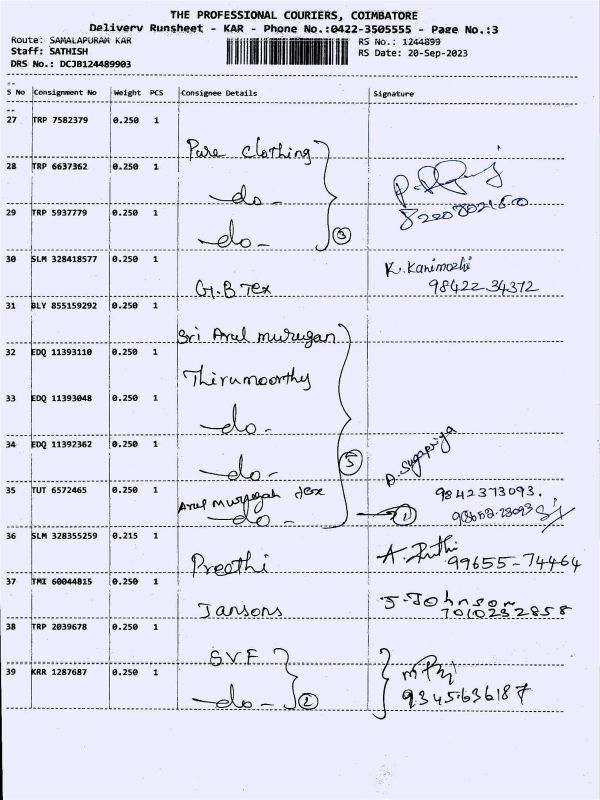 THE PROFESSIONAL COURIERS, COIMBATORE
Delivery Runsheet - KAR - Phone No.:0422-3505555 - Page No.:3
Route: SAMALAPURAM KAR RS No.: 1244899
Staff: SATHISH RS Date: 20-Sep-2023
DRS No.: DCJB124489903
S No Consignment No Weight PCS Consignee Details Signature
27 TRP 7582379 0.250 1
Pure clothing
28 TRP 6637362 0.250 1
-do-
29 TRP 5937779 0.250 1
-do- 3
30 SLM 328418577 0.250 1 K. Kanimozhi
G.B Tex 98422-34372
31 BLY 855159292 0.250 1
Sri Arul murugan
32 EDQ 11393110 0.250 1
Thirumoorthy
33 EDQ 11393048 0.250 1
-do-
34 EDQ 11392362 0.250 1
-do- 5 D. Sugapriya
35 TUT 6572465 0.250 1 9842373093.
Arul murugan tex
-do- 1
36 SLM 328355259 0.215 1
Preethi 99655-74464
37 TMI 60044815 0.250 1 J-Johnson
Jansons 7010232858
38 TRP 2039678 0.250 1
SVF
39 KRR 1287687 0.250 1
-do- 2 9345636187